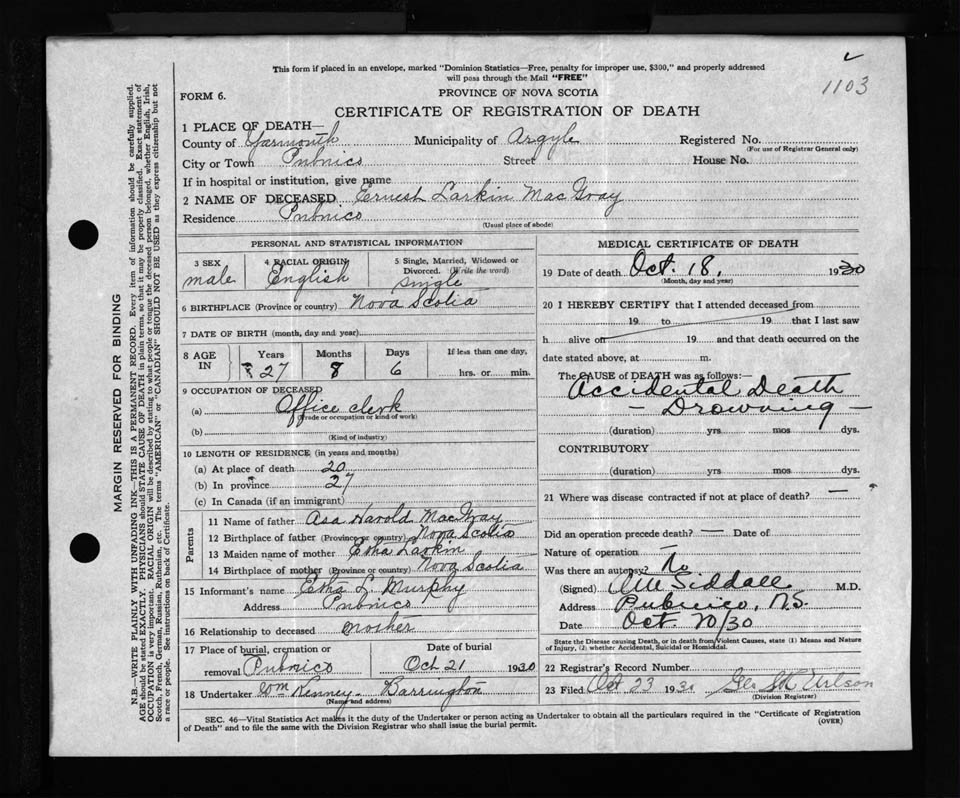 This form if placed in an envelope, marked "Dominion Statistics—Free, penalty for improper use, $300," and properly addressed
will pass through the Mail "FREE"
1103
FORM 6.
PROVINCE OF NOVA SCOTIA
CERTIFICATE OF REGISTRATION OF DEATH
1 PLACE OF DEATH—
County of Yarmouth Municipality of Argyle Registered No.
(For use of Registrar General only)
City or Town Pubnico Street House No.
If in hospital or institution, give name
2 NAME OF DECEASED Ernest Larkin MacGray
Residence Pubnico
(Usual place of abode)
PERSONAL AND STATISTICAL INFORMATION
3 SEX male
4 RACIAL ORIGIN English
5 Single, Married, Widowed or Divorced. (Write the word) single
6 BIRTHPLACE (Province or country) Nova Scotia
7 DATE OF BIRTH (month, day and year)
8 AGE IN Years 27 Months 8 Days 6 If less than one day, hrs. or min.
9 OCCUPATION OF DECEASED
(a) Office clerk
(Trade or occupation or kind of work)
(b)
(Kind of industry)
10 LENGTH OF RESIDENCE (in years and months)
(a) At place of death 20
(b) In province 27
(c) In Canada (if an immigrant)
Parents
11 Name of father Asa Harold MacGray
12 Birthplace of father (Province or country) Nova Scotia
13 Maiden name of mother Etha Larkin
14 Birthplace of mother (Province or country) Nova Scotia
15 Informant's name Etha L. Murphy
Address Pubnico
16 Relationship to deceased Mother
17 Place of burial, cremation or removal Pubnico Date of burial Oct 21 1930
18 Undertaker Wm Kenney - Barrington
(Name and address)
MEDICAL CERTIFICATE OF DEATH
19 Date of death Oct. 18, 1930
(Month, day and year)
20 I HEREBY CERTIFY that I attended deceased from
19 to 19 that I last saw
h alive on 19 and that death occurred on the
date stated above, at m.
The CAUSE of DEATH was as follows:—
Accidental Death
- Drowning -
(duration) yrs. mos dys.
CONTRIBUTORY
(duration) yrs. mos dys.
21 Where was disease contracted if not at place of death? —
Did an operation precede death? — Date of
Nature of operation
Was there an autopsy? No
(Signed) Siddall M.D.
Address Pubnico, N.S.
Date Oct. 20/30
State the Disease causing Death, or in death from Violent Causes, state (1) Means and Nature
of Injury, (2) whether Accidental, Suicidal or Homicidal.
22 Registrar's Record Number
23 Filed Oct 23 1930 Wilson
(Division Registrar)
SEC. 46—Vital Statistics Act makes it the duty of the Undertaker or person acting as Undertaker to obtain all the particulars required in the "Certificate of Registration
of Death" and to file the same with the Division Registrar who shall issue the burial permit.
(OVER)
MARGIN RESERVED FOR BINDING
N.B.—WRITE PLAINLY WITH UNFADING INK—THIS IS A PERMANENT RECORD. Every item of information should be carefully supplied.
AGE should be stated EXACTLY. PHYSICIANS should STATE CAUSE OF DEATH in plain terms, so that it may be properly classified. Exact statement of
OCCUPATION is very important. RACIAL ORIGIN will be described by stating to what people or tongue the deceased person belonged, whether English, Irish,
Scotch, French, German, Russian, Ruthenian, etc. The terms "AMERICAN" or "CANADIAN" SHOULD NOT BE USED as they express citizenship but not
a race or people. See instructions on back of Certificate.